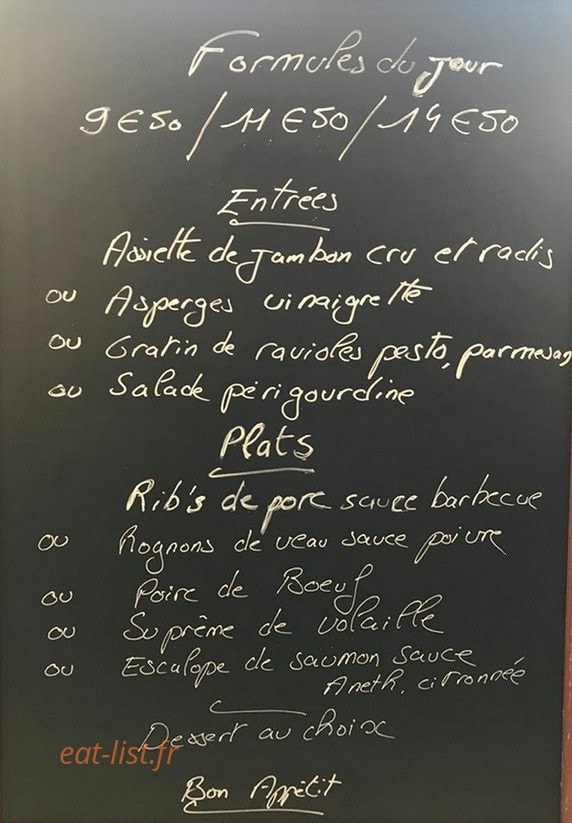 Formules du jour
9€50 / 11€50 / 14€50
Entrées
Assiette de jambon cru et radis
ou Asperges vinaigrette
ou Gratin de ravioles pesto, parmesan
ou Salade périgourdine
Plats
Rib's de porc sauce barbecue
ou Rognons de veau sauce poivre
ou Poire de Boeuf
ou Suprême de volaille
ou Escalope de saumon sauce
Aneth, citronnée
Dessert au choix
eat-list.fr
Bon Appétit